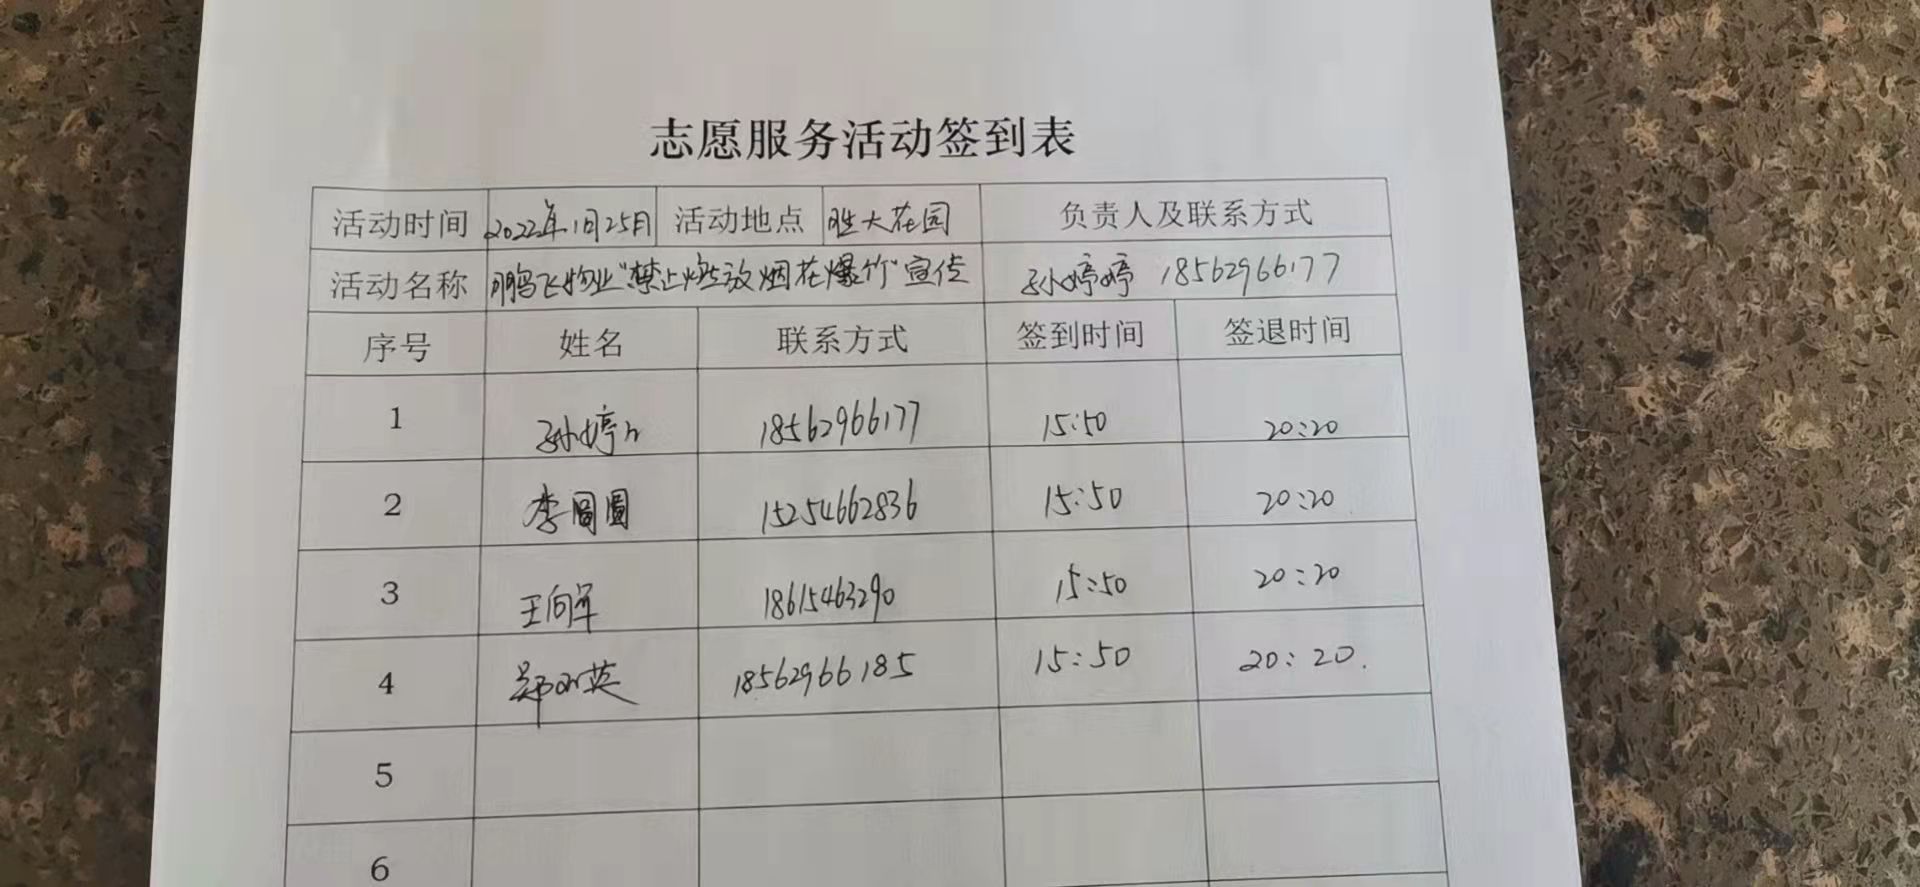 志愿服务活动签到表
活动时间 2022年1月25日 活动地点 胜大花园 负责人及联系方式
活动名称 鹏飞物业"禁止燃放烟花爆竹"宣传 孙婷婷 18562966177
序号 姓名 联系方式 签到时间 签退时间
1 孙婷々 18562966177 15:50 20:20
2 李圆圆 15254662836 15:50 20:20
3 王向军 18615463290 15:50 20:20
4 郑 英 18562966185 15:50 20:20.
5
6